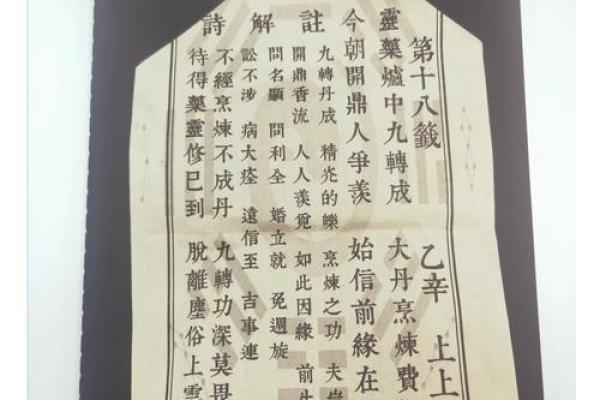 註解詩
第十八籤 乙辛 上上
靈藥爐中九轉成 大丹烹煉費
今朝開鼎人爭羨 始信前緣在
九轉丹成 精光的皪 烹煉之功 夫
開鼎香流 人人羨覓 如此因緣 前
問名顯 問利全 婚立就 免週旋
訟不涉 病大痊 遠信至 吉事連
不經烹煉不成丹 九轉功深莫畏
待得藥靈修已到 脫離塵俗上